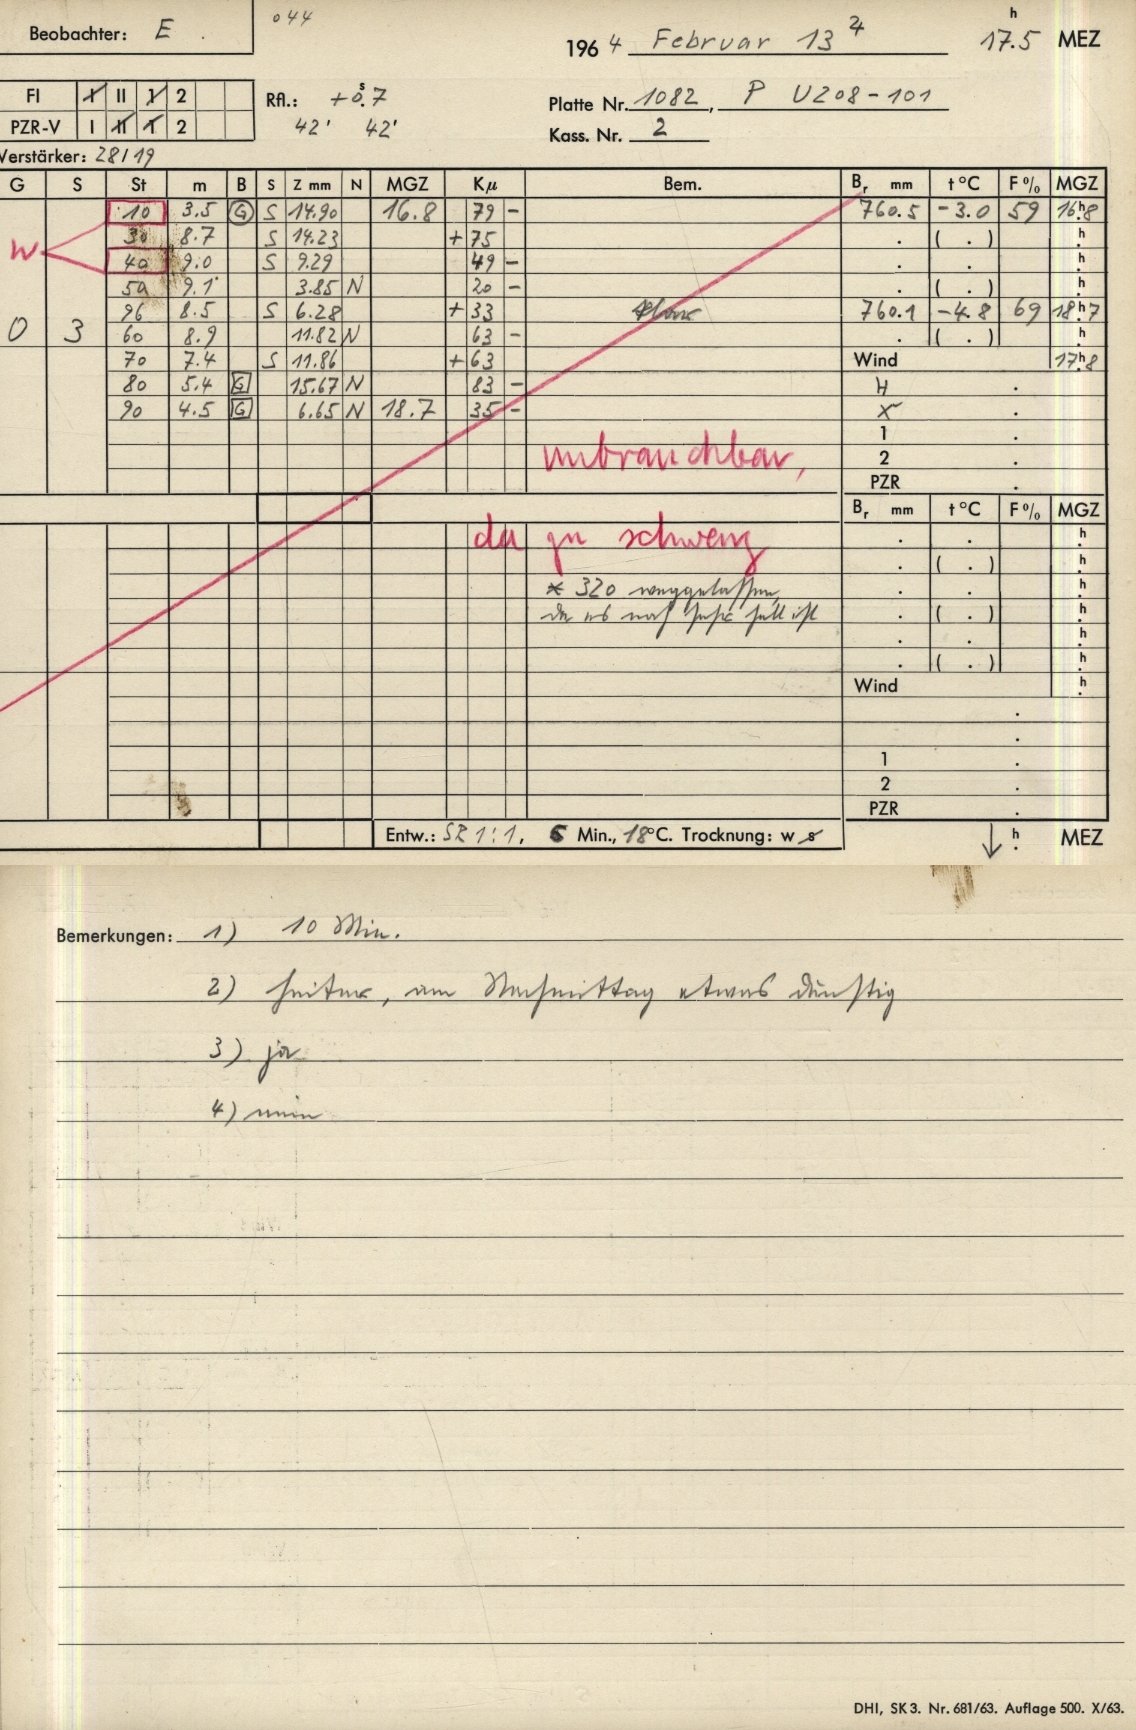 Beobachter: E .
044
1964 Februar 13 17.5 h MEZ
FI I II 1 2
PZR-V I II 1 2
Rfl.: +0.7 s
42' 42'
Platte Nr. 1082, P U208-101
Kass. Nr. 2
Verstärker: 28/19
G S St m B S Z mm N MGZ Kμ Bem. Br mm t °C F % MGZ
10 3.5 G S 14.90 16.8 79 - 760.5 -3.0 59 16h8
W
30 8.7 S 14.23 +75 . ( . ) h
40 9.0 S 9.29 49 - . . h
50 9.1 3.85 N 20 - . ( . ) h
96 8.5 S 6.28 +33 klar 760.1 -4.8 69 18h7
0 3 60 8.9 11.82 N 63 - . ( . ) h
70 7.4 S 11.86 +63 Wind 17h8
80 5.4 G 15.67 N 83 - H .
90 4.5 G 6.65 N 18.7 35 - .
1 .
unbrauchbar,
2 .
PZR .
Br mm t °C F % MGZ
da zu schwarz
. . h
. ( . ) h
* 320 weggelassen,
. . h
da es noch sehr hell ist
. ( . ) h
. . h
. ( . ) h
Wind h
.
.
1 .
2 .
PZR .
Entw.: SR 1:1, 6 Min., 18°C. Trocknung: w s
↓ h MEZ
Bemerkungen: 1) 10 Min.
2) heiter, am Nachmittag etwas dunstig
3) ja
4) nein
DHI, SK 3. Nr. 681/63. Auflage 500. X/63.